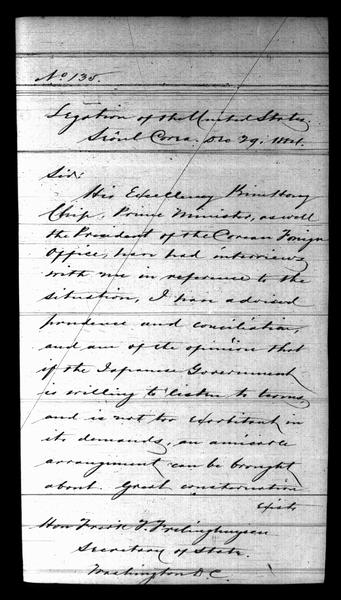 No 135.
Legation of the United States.
Séoul Corea. Dec 29. 1884.
Sir:
His Excellency Kim Hong
Chip, Prime Minister, as well
the President of the Corean Foreign
Office, have had interviews
with me in reference to the
situation, I have advised
prudence and conciliation,
and am of the opinion that
if the Japanese Government
is willing to listen to terms
and is not too exorbitant in
its demands, an amicable
arrangement can be brought
about. Great consternation
exists
Hon Fredk T. Frelinghuysen
Secretary of State.
Washington D.C.